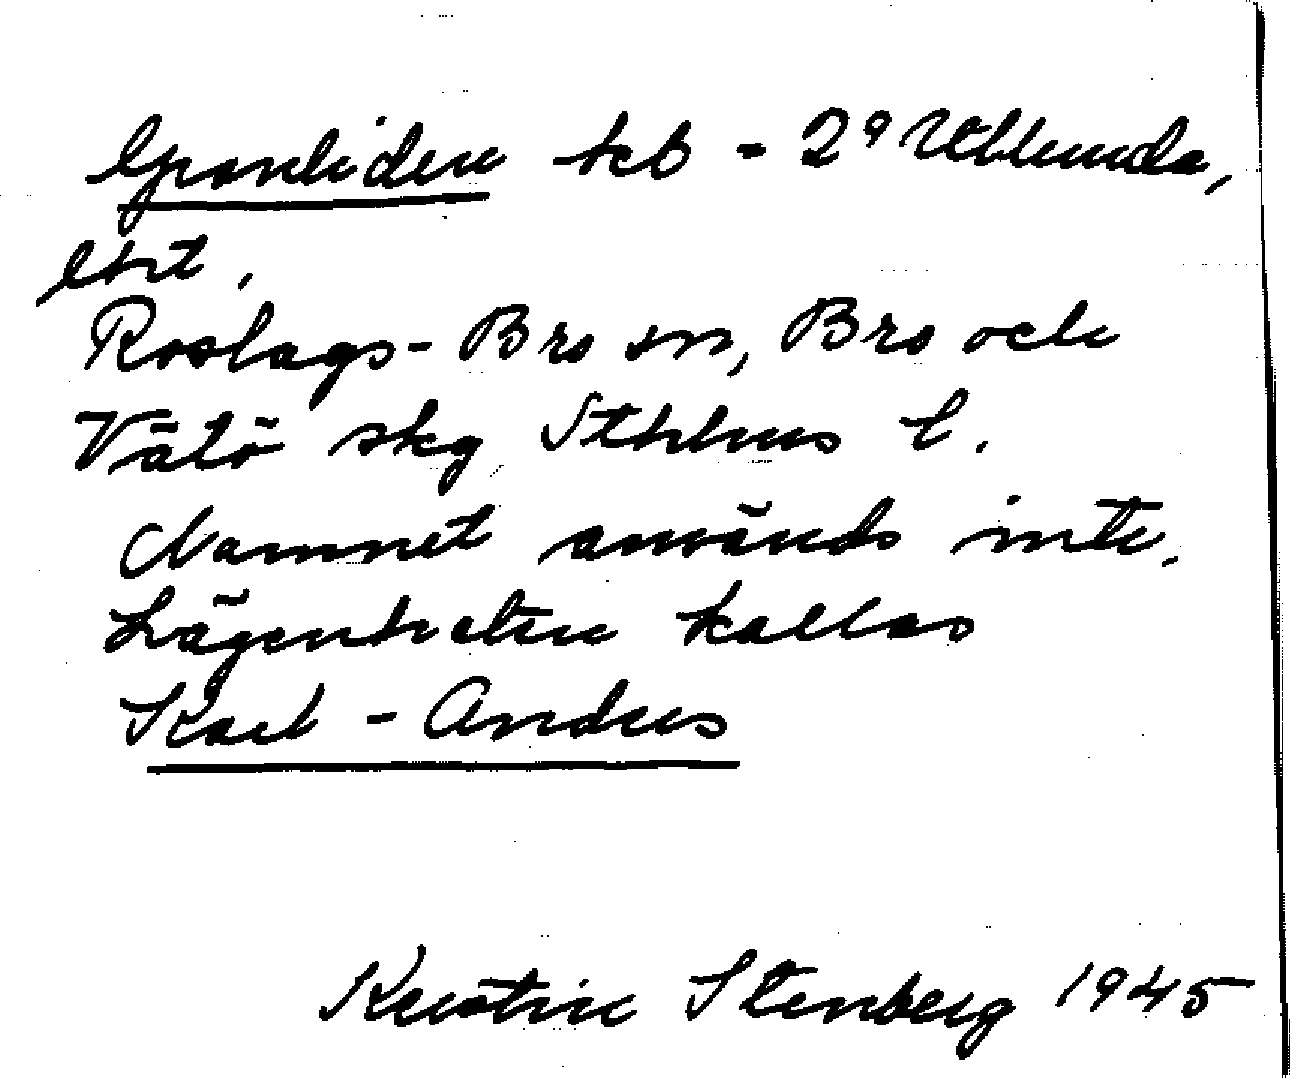 Granliden tcb - 2⁹ Utlunda,
lht,
Roslags-Bro sn, Bro och
Vätö skg Sthlms l.
Namnet används inte.
Lägenheten kallas
Karl - Anders
Kerstin Stenberg 1945